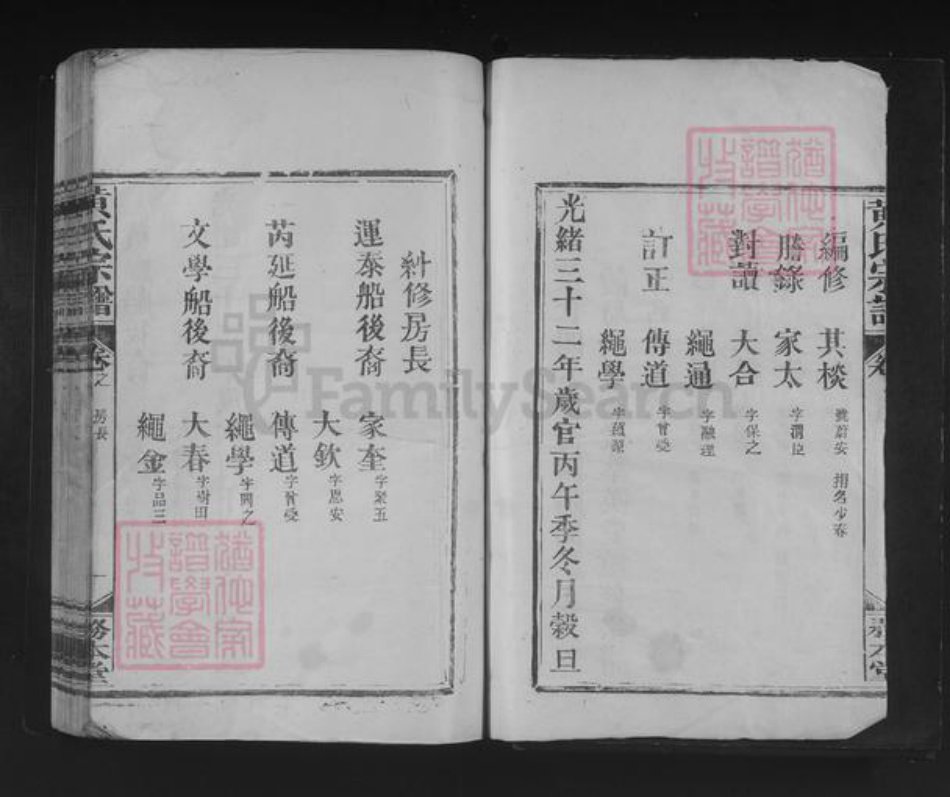 黄氏宗譜
編修 其棪 號蔚安 捐名少春
謄錄 家太 字渭臣
對讀 大合 字保之
繩通 字融理
訂正 傳道 字曾受
繩學 字蘊潔
光緒三十二年歲官丙午季冬月穀旦
務本堂
糾修房長
運泰船後裔 家奎 字聚五
大欽 字思安
芮延船後裔 傳道 字曾受
繩學 字興之
文學船後裔 大春 字樹田
繩金 字品三
黄氏宗譜 卷之 房長 一 務本堂
猶他家譜學會收藏
猶他家譜學會收藏
FamilySearch